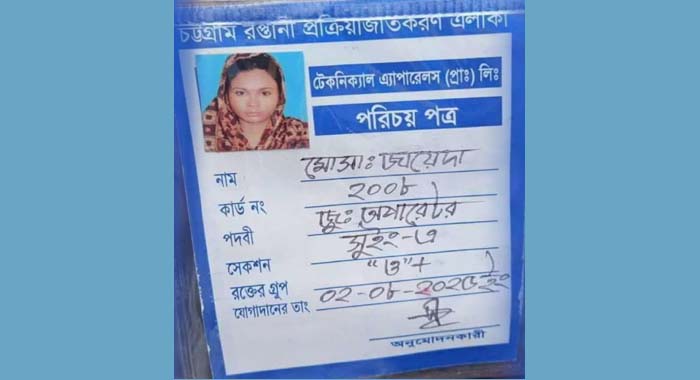 চট্টগ্রাম রপ্তানী প্রক্রিয়াজাতকরণ এলাকা
টেকনিক্যাল এ্যাপারেলস (প্রাঃ) লিঃ
পরিচয় পত্র
নাম মোসাঃ জায়েদা
কার্ড নং ২০০৮
পদবী জুঃ অপারেটর
সেকশন সুইং-এ
রক্তের গ্রুপ "ও"+
যোগাদানের তাং ০২-০৮-২০২৫ ইং
অনুমোদনকারী